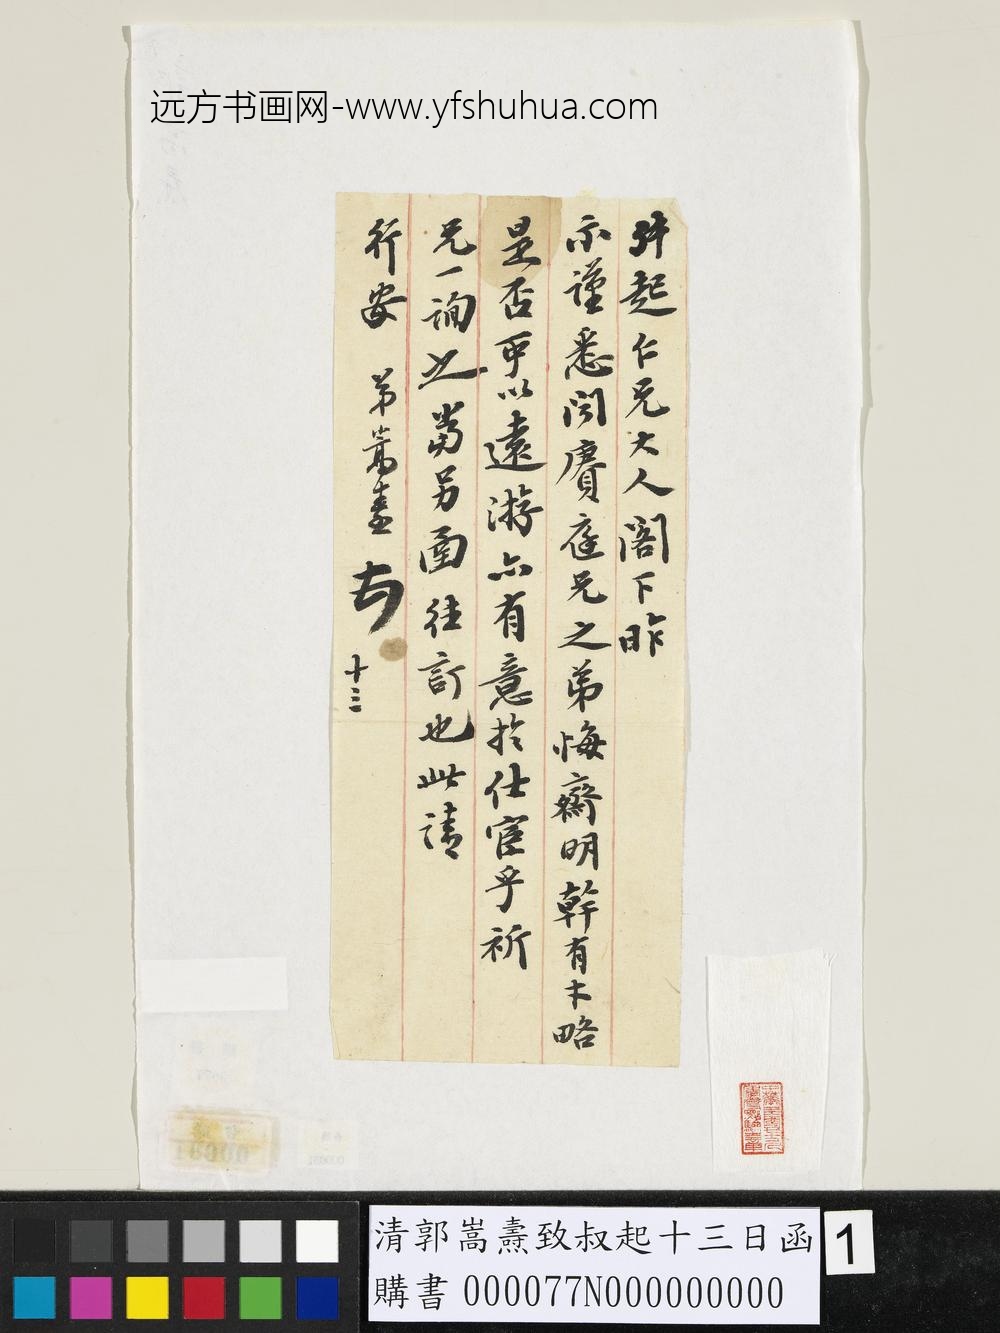 远方书画网-www.yfshuhua.com
叔起仁兄大人閣下昨
示謹悉聞賡庭兄之弟悔齋明幹有才略
是否可以遠游亦有意於仕宦乎祈
兄一詢之當另函往訂也此請
行安 弟嵩燾 十三
清郭嵩燾致叔起十三日函
購書 000077N000000000
1